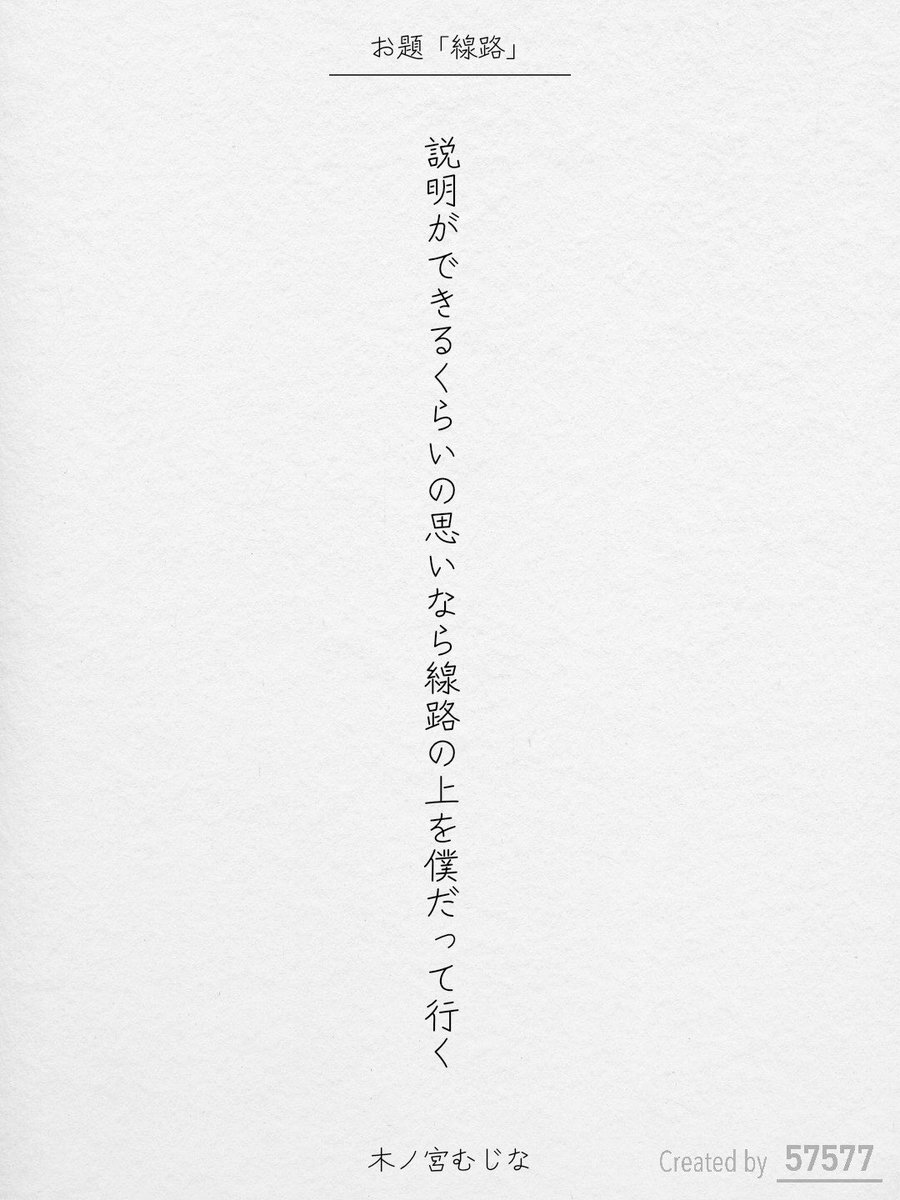 お題「線路」
説明ができるくらいの思いなら線路の上を僕だって行く
木ノ宮むじな
Created by 57577